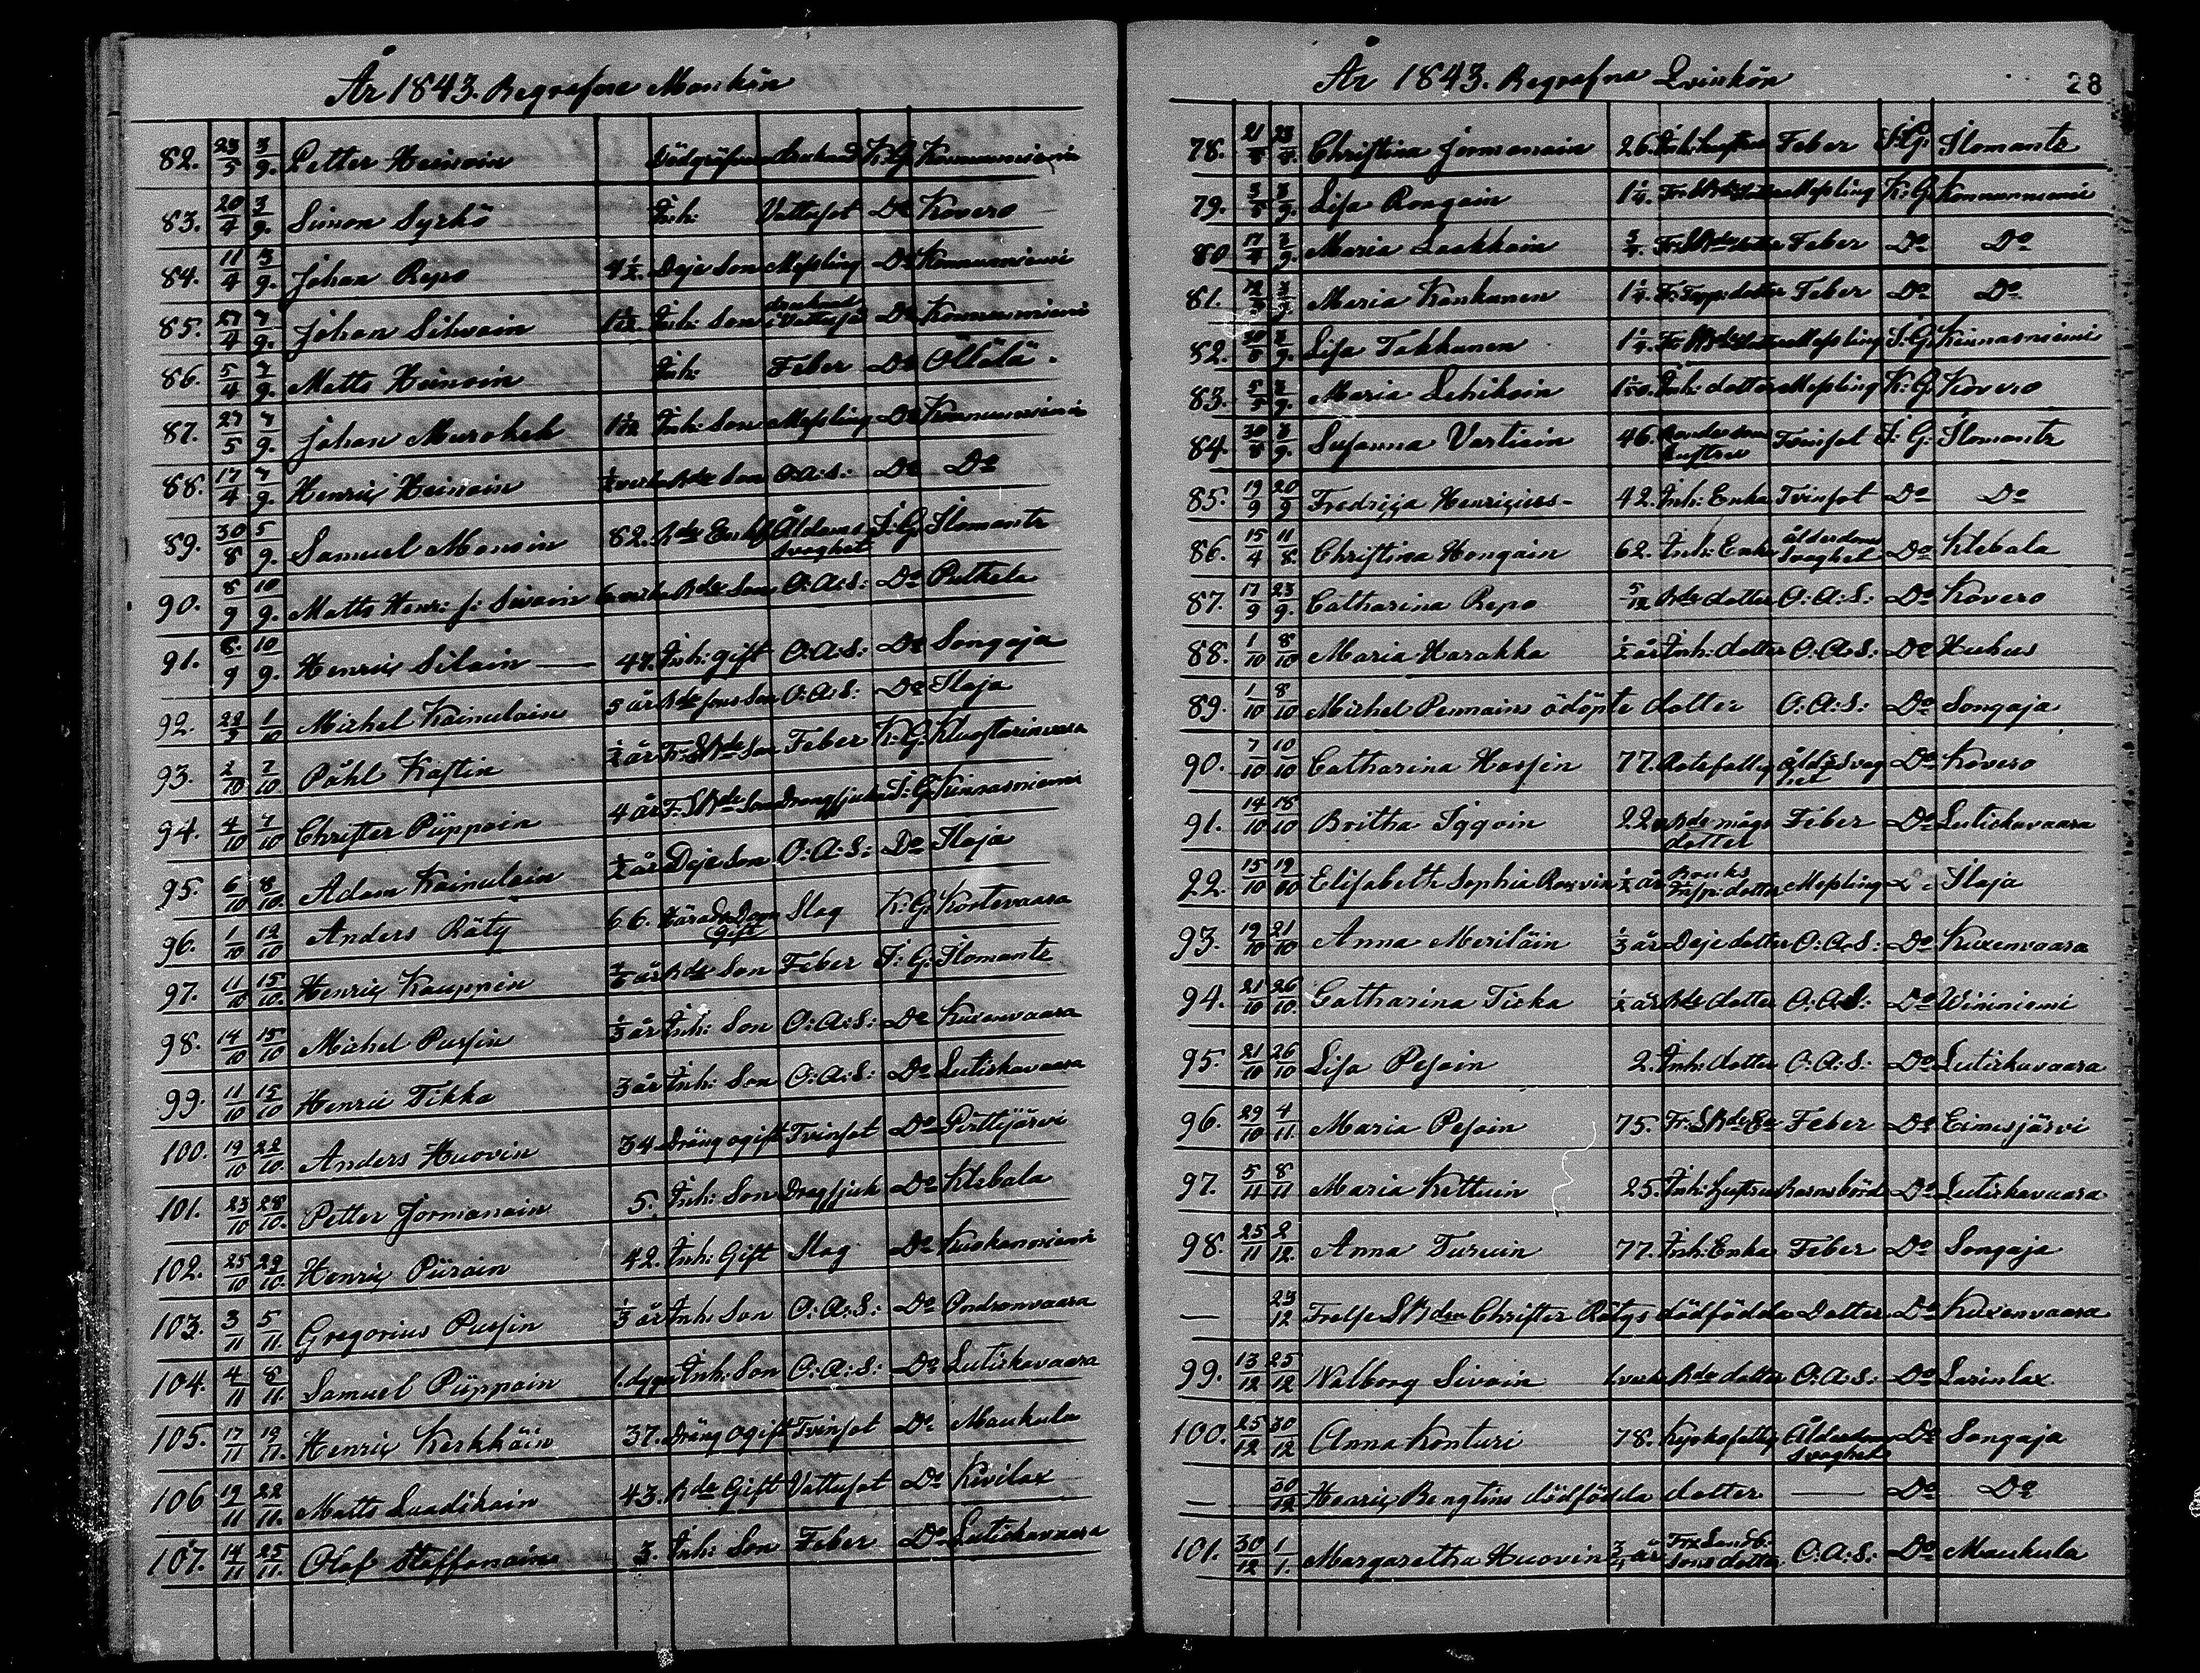 År 1843. Begrafne Mankön
82. 23/5 3/9. Petter Heinoin K:G
83. 20/4 3/9. Simon Syrkö Inh: Vattusot Do Kovero
84. 11/4 3/9. Johan Repo 4 1/2. Deje Son Meßling Do
85. 27/4 7/9. Johan Sihvoin 1 1/12 Inh: Son Vattusot Do
86. 5/4 7/9. Matts Heinoin Inh: Feber Do Öllölä.
87. 27/5 7/9. Johan Muroheh 1 1/12 Inh: Son Meßling Do
88. 17/4 7/9. Henric Heinoin Bde Son O:A:S: Do Do
89. 30/8 5/9. Samuel Monoin 82. Bde Enkl Ålderdoms svaghet I:G: Ilomants
90. 8/9 10/9. Matts Henr: s: Sivoin Bde Son O:A:S: Do Putkela
91. 8/9 10/9. Henric Siloin — 47. Inh: gift O:A:S: Do Songaja
92. 1/10 Michel Kainulain 5 år Bde sons Son O:A:S: Do Ilaja
93. 2/10 7/10. Påhl Kastin 1/2 år Fr: SBde Son Feber K:G: Kluostarinvaara
94. 4/10 7/10 Christer Püppoin 4 år F. SBde Son Dragsjuka I:G: Kinnasniemi
95. 6/10 8/10. Adam Kainulain 1/2 år Deje Son O:A:S: Do Ilaja
96. 1/10 12/10 Anders Räty 66. Gift Slag K:G: Kortevaara
97. 11/10 15/10. Henric Kauppin Bde Son Feber I:G: Ilomants
98. 14/10 15/10 Michel Pussin 1/3 år Inh: Son O:A:S: Do Kuxenvaara
99. 11/10 15/10 Henric Tikka 3 år Inh: Son O:A:S: Do Lutiskavaara
100. 19/10 22/10. Anders Huovin 34 Dräng ogift Tvinsot Do Pirttijärvi
101. 23/10 28/10. Petter Jormanain 5. Inh: Son Dragsjuk Do Ktebala
102. 25/10 29/10. Henric Piirain 42. Inh: Gift Slag Do Kuokanniemi
103. 3/11 5/11. Gregorius Pussin 1/3 år Inh: Son O:A:S: Do Ondronvaara
104. 4/11 8/11. Samuel Püppoin 1. dygn Inh: Son O:A:S: Do Lutiskavaara
105. 17/11 19/11. Henric Kerkkäin 37. Dräng ogift Tvinsot Do Maukula
106 19/11 22/11. Matts Luadikain 43. Bde Gift Vattusot Do Kivilax
107. 14/11 25/11. Olof Staffanain 3. Inh: Son Feber Do Lutiskavaara
År 1843. Begrafna Qvinkön 28
78. Christina Jormanain 26. Inh: hustru Feber I:G: Ilomants
79. 3/5 3/9. Lisa Rongain 1 1/4. Meßling K:G
80 17/4 7/9. Maria Laakkoin 3/4. Feber Do Do
81. Maria Kankunen 1 1/4. dotter Feber Do Do
82. 3/9. Lisa Takkunen 1 1/4. Meßling I:G: Kinnasniemi
83. 5/5 7/9. Maria Lehikoin Inh: dotter Meßling K:G: Kovero
84. 30/8 3/9. Susanna Vartiain 46. hustru Tvinsot I:G: Ilomants
85. 19/9 20/9 Fredrica Henricius- 42. Inh: Enka Tvinsot Do Do
86. 15/4 11/8. Christina Hongain 62. Inh: Enka ålderdoms svaghet Do Ktebala
87. 17/9 23/9. Catharina Repo 5/12 Bde dotter O:A:S: Do Kovero
88. 1/10 8/10 Maria Harakka 1/2 år Inh: dotter O:A:S: Do Huhus
89. 1/10 8/10 Michel Pennains odöpte dotter O:A:S: Do Songaja
90. 7/10 10/10 Catharina Hassin 77. Rotefattig åld:Svag het Do Kovero
91. 14/10 18/10 Britha Iggoin 22 Bde mågs dotter Feber Do Lutiskavaara
22. 15/10 19/10 Elisabeth Sophia 1/2 år Bruks Insp: dotter Meßling Ilaja
93. 19/10 21/10 Anna Meriläin 1/3 år Deje dotter O:A:S: Do Kuxenvaara
94. 21/10 26/10. Catharina Tiska 1/2 år Bde dotter O:A:S: Do Wininiemi
95. 21/10 26/10 Lisa Pesoin 2. Inh: dotter O:A:S: Do Lutiskavaara
96. 29/10 4/11. Maria Pesoin 75. Fr: SBde Feber Do Eimisjärvi
97. 5/11 8/11 Maria Kettuin 25. Inh: hustru Barnsbörd Do Lutiskavaara
98. 25/11 2/12. Anna Turuin 77. Inh: Enka Feber Do Songaja
— 23/12 Frelse SBden Christer Rätys dödfödda Dotter Do Kuxenvaara
99. 13/12 25/12 Walborg Sivoin Bde dotter O:A:S: Do Larinlax
100. 25/12 30/12 Anna Konturi 78. Kyrkofattig Ålderdoms svaghet Do Songaja
— 30/12 Henric Bengtins dödfödda dotter — Do Do
101. 30/12 1/1. Margaretha Huovin 3/4 år sons dotter O:A:S: Do Maukula